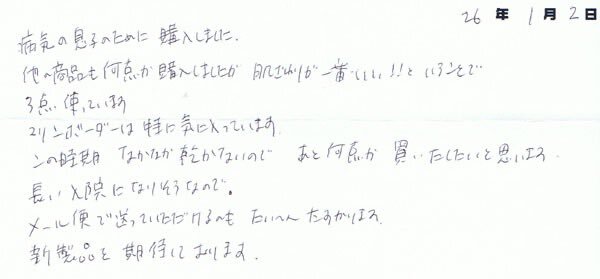 26年 1月 2日
病気の息子のために購入しました。
他の商品も何点か購入しましたが 肌ざわりが一番いい!!ということで
3点 使っています
マリンボーダーは特に気に入っています。
この時期 なかなか乾かないので あと何点か 買いたしたいと思います
長い入院になりそうなので。
メール便で送っていただけるのも たいへん たすかります
新製品を期待しております。